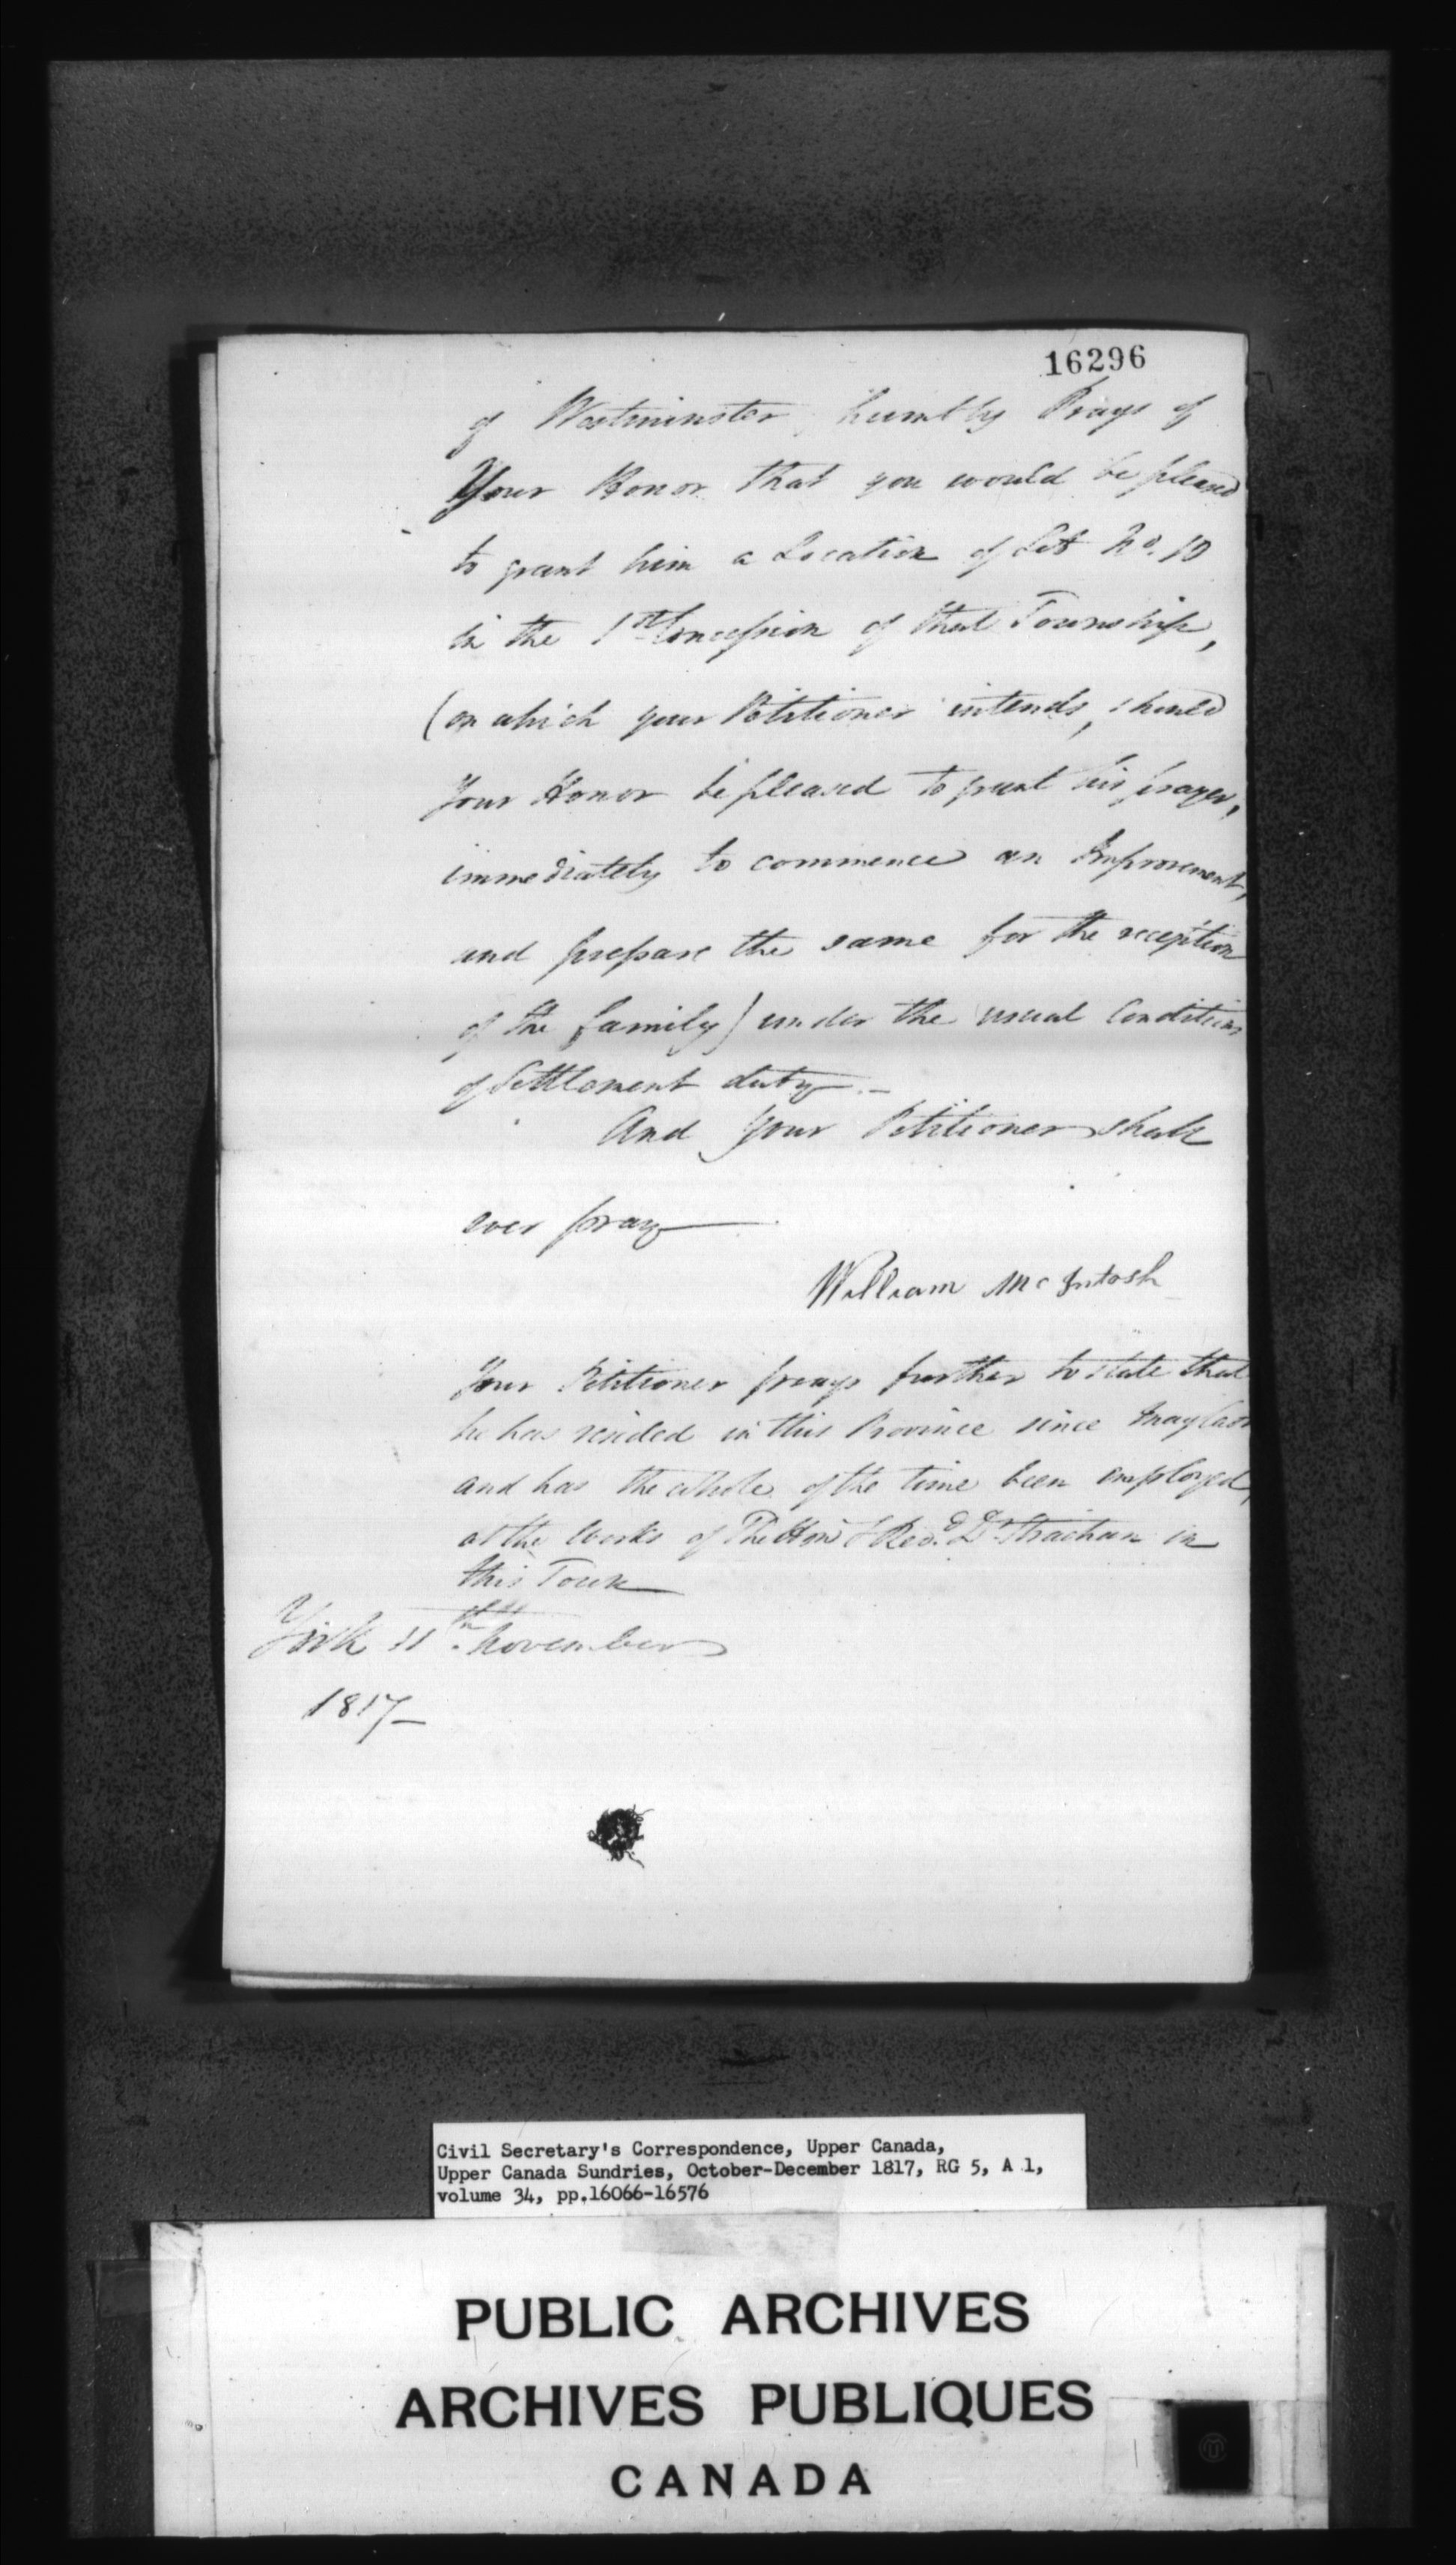 16296
of Westminster, humbly Prays of
Your Honor that you would be pleased
to grant him a Location of Lot No. 10
in the 1st Concession of that Township,
(on which your Petitioner intends, should
Your Honor be pleased to grant his prayer,
immediately to commence an Improvement,
and prepare the same for the reception
of the family) under the usual Conditions
of Settlement duty.—
And your Petitioner shall
ever pray—
William McIntosh
Your Petitioner prays further to state that
he has resided in this Province since May last
and has the whole of the time been employed,
at the works of The Honl & Revd. Dr Strachan in
this Town
York 11th November
1817—
Civil Secretary's Correspondence, Upper Canada,
Upper Canada Sundries, October-December 1817, RG 5, A 1,
volume 34, pp.16066-16576
PUBLIC ARCHIVES
ARCHIVES PUBLIQUES
CANADA